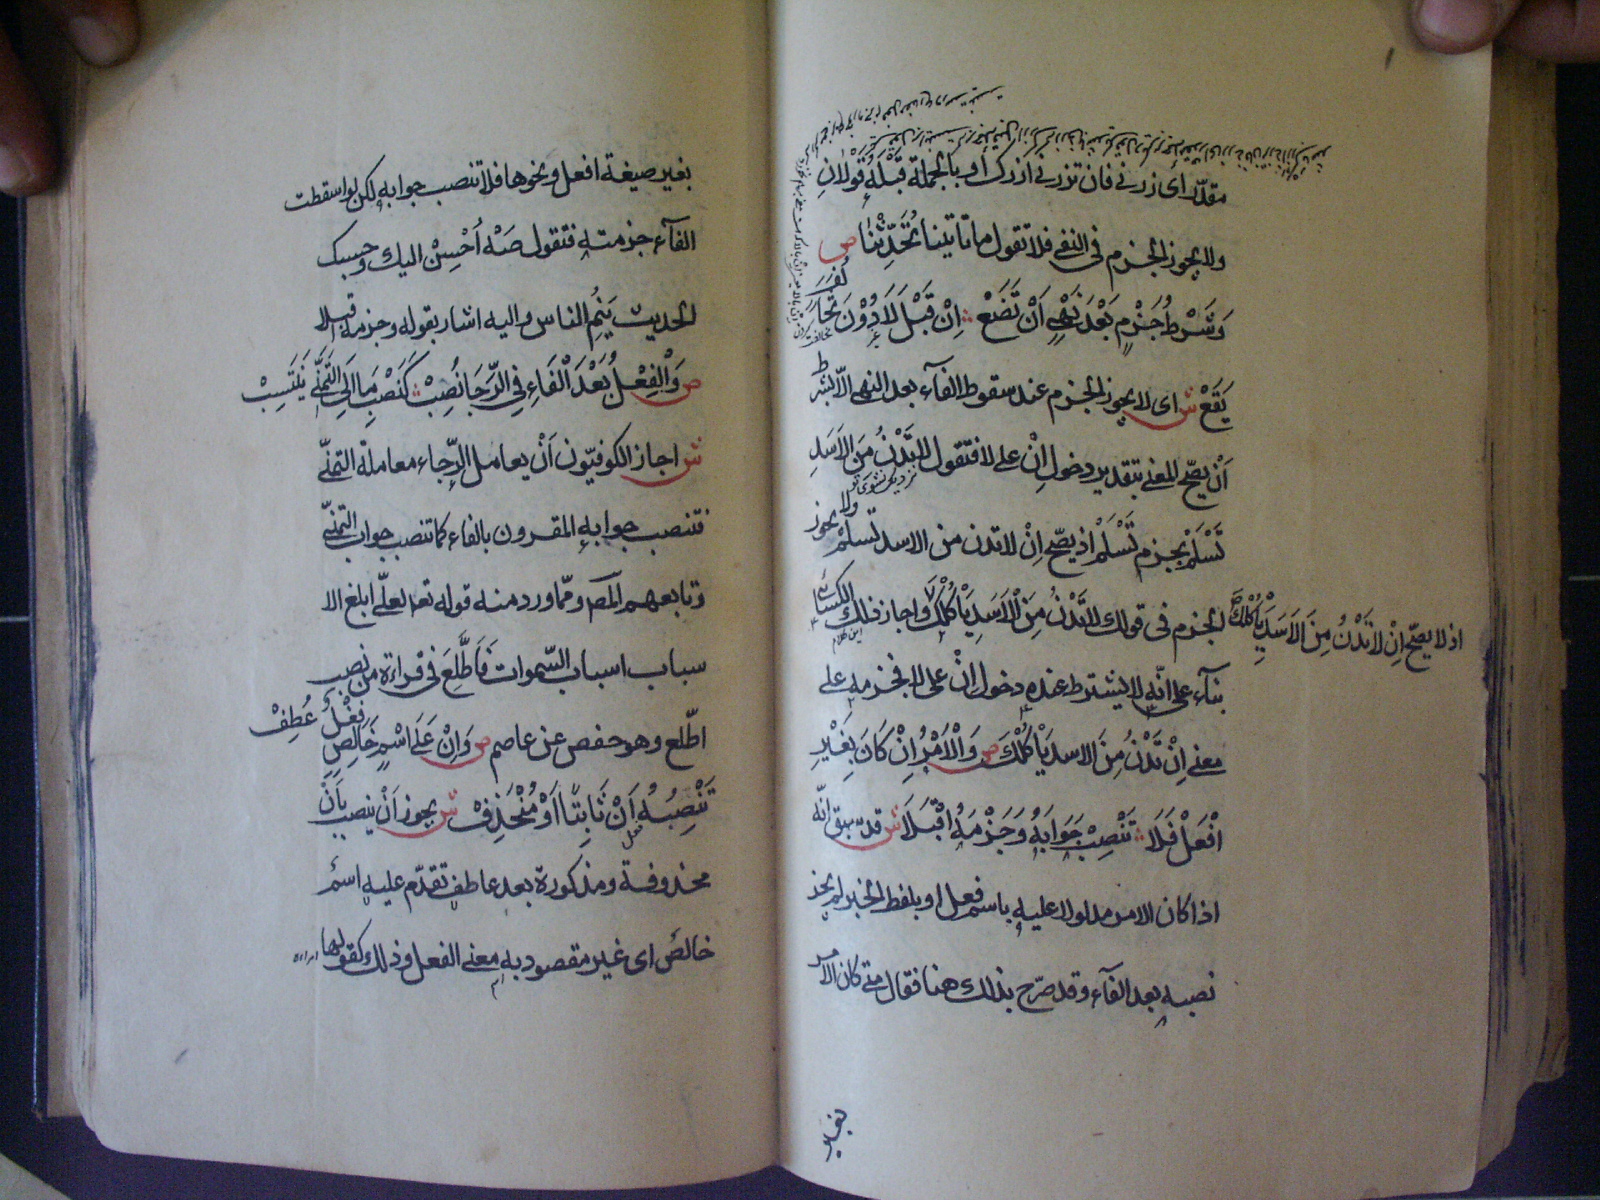 مقدّر اى زرنى فان تزرنى ازرك او بالجملة قبله قولان
ولا يجوز الجزم فى النفى فلا تقول ما تاتينا تُحَدِّثْنا ص
وَشَرْطُ جَزْمٍ بَعْدَ نَهْىٍ اَنْ تَضَعْ اِنْ قَبْلَ لَا دُوْنَ تَخَالُفٍ
يَقَعْ ش اى لا يجوز الجزم عند سقوط الفآء بعد النهى الّا بشرط
اَنْ يصّح المعنى بتقدير دخول اِنْ على لا فتقول لا تَدْنُ مِنَ الاَسَدِ
تَسْلَمْ بجزم تَسْلَمْ اذ يصّح اِنْ لا تدن من الاسد تسلم ولا يجوز
الجزم فى قولك لا تَدْنُ مِنَ الْاَسَدِ يَاْكُلْكَ واجاز ذلك الكسائى
اذ لا يصّح اِنْ لا تَدْنُ مِنَ الاَسَدِ يَاْكُلْكَ
بنآء على انّه لا يشترط عنده دخول اِنْ على لا فجزمه على
معنى اِنْ تَدْنُ مِنَ الاسد يَاْكُلْكَ ص وَالْاَمْرُ اِنْ كَانَ بِغَيْرِ
افْعَلْ فَلَا تَنْصِبْ جَوَابَهُ وَجَزْمَهُ اقْبَلَا ش قد سبق انّه
اذا كان الامر مدلولا عليه باسم فعل او بلفظ الخبر لم يجز
نصبه بعد الفآء وقد صرّح بذلك هنا فقال متى كان الامر
بغير
بغير صيغة افعل ونحوها فلا تنصب جوابه لكن لو اسقطت
الفآء جزمته فتقول صَهْ اُحْسِنْ اليك وحسبك
الحديث يَنَمِ الناس واليه اشار بقوله وجزمه اقبلا
ص وَالْفِعْلُ بَعْدَ الْفَاءِ فِى الرَّجَا نُصِبْ كَنَصْبِ مَا اِلَى التَّمَنّى يَنْتَسِبْ
ش اجاز الكوفيّون اَنْ يعامل الرّجاء معاملة التمنّى
فتنصب جوابه المقرون بالفاء كما تنصب جواب التمنّى
وتابعهم المص وممّا ورد منه قوله تعا لعلّى ابلغ الا
سباب اسباب السّموات فَاَطَّلِعَ فى قراءة من نصب
اطّلع وهو حفص عن عاصم ص وَاِنْ عَلَى اسْمٍ خَالِصٍ فِعْلٌ عُطِفْ
تَنْصِبُهُ اَنْ ثَابِتًا اَوْ مُنْحَذِفْ ش يجوز اَنْ ينصب بِاَنْ
محذوفة ومذكورة بعد عاطف تقدّم عليه اسم
خالص اى غير مقصود به معنى الفعل وذلك كقولها